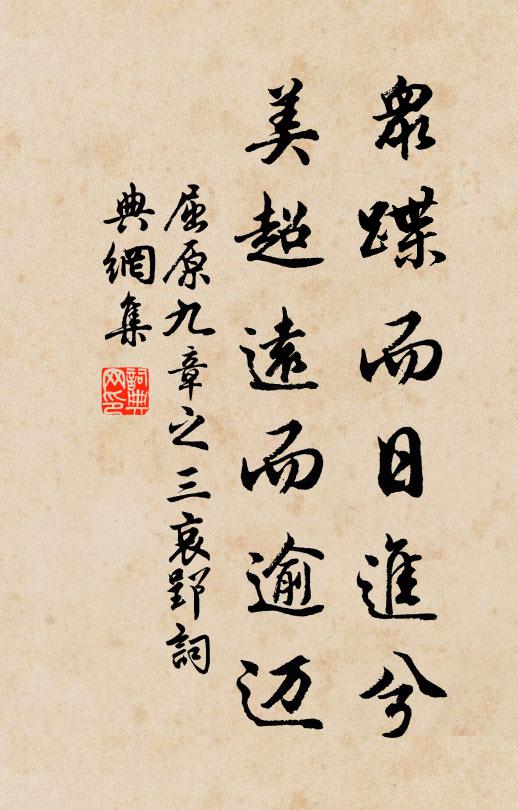 眾蹀而日進兮
美超遠而逾迈
屈原九章之三哀郢詞
典網集
詞典网印